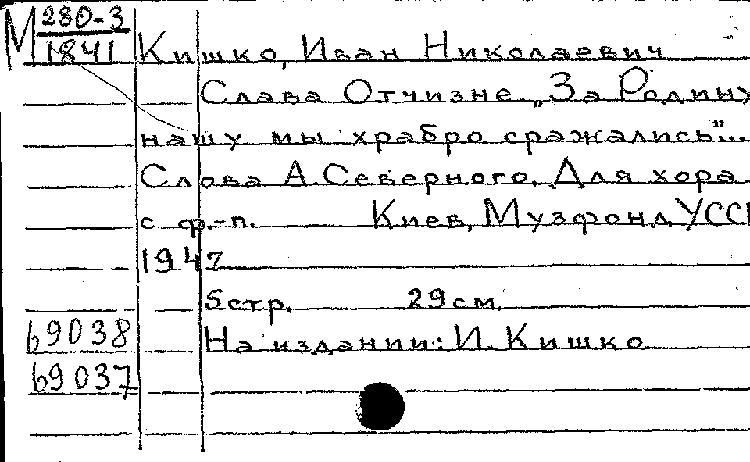 М 280-3
1841
Кишко, Иван Николаевич
Слава Отчизне. „За Родину
нашу мы храбро сражались"...
Слова А Северного. Для хора
с ф.-п. Киев, Музфонд УССР
1947
5стр. 29см.
69038 На издании: И. Кишко
69037